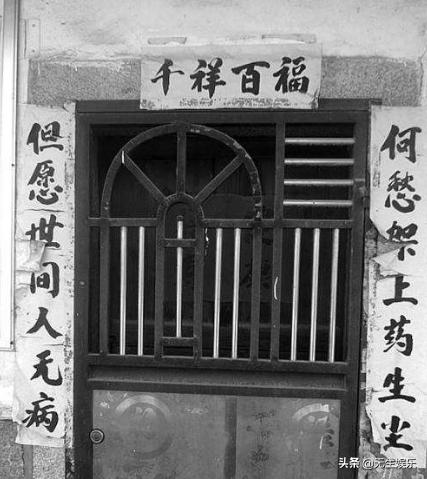 千祥百福
但愿世间人无病
何愁架上药生尘
头条 @无生娱乐